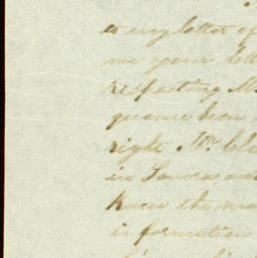 to my letter of
me your lett
respecting M
quaune been
right Mr Cla
in Sonora and
knew the ma
information